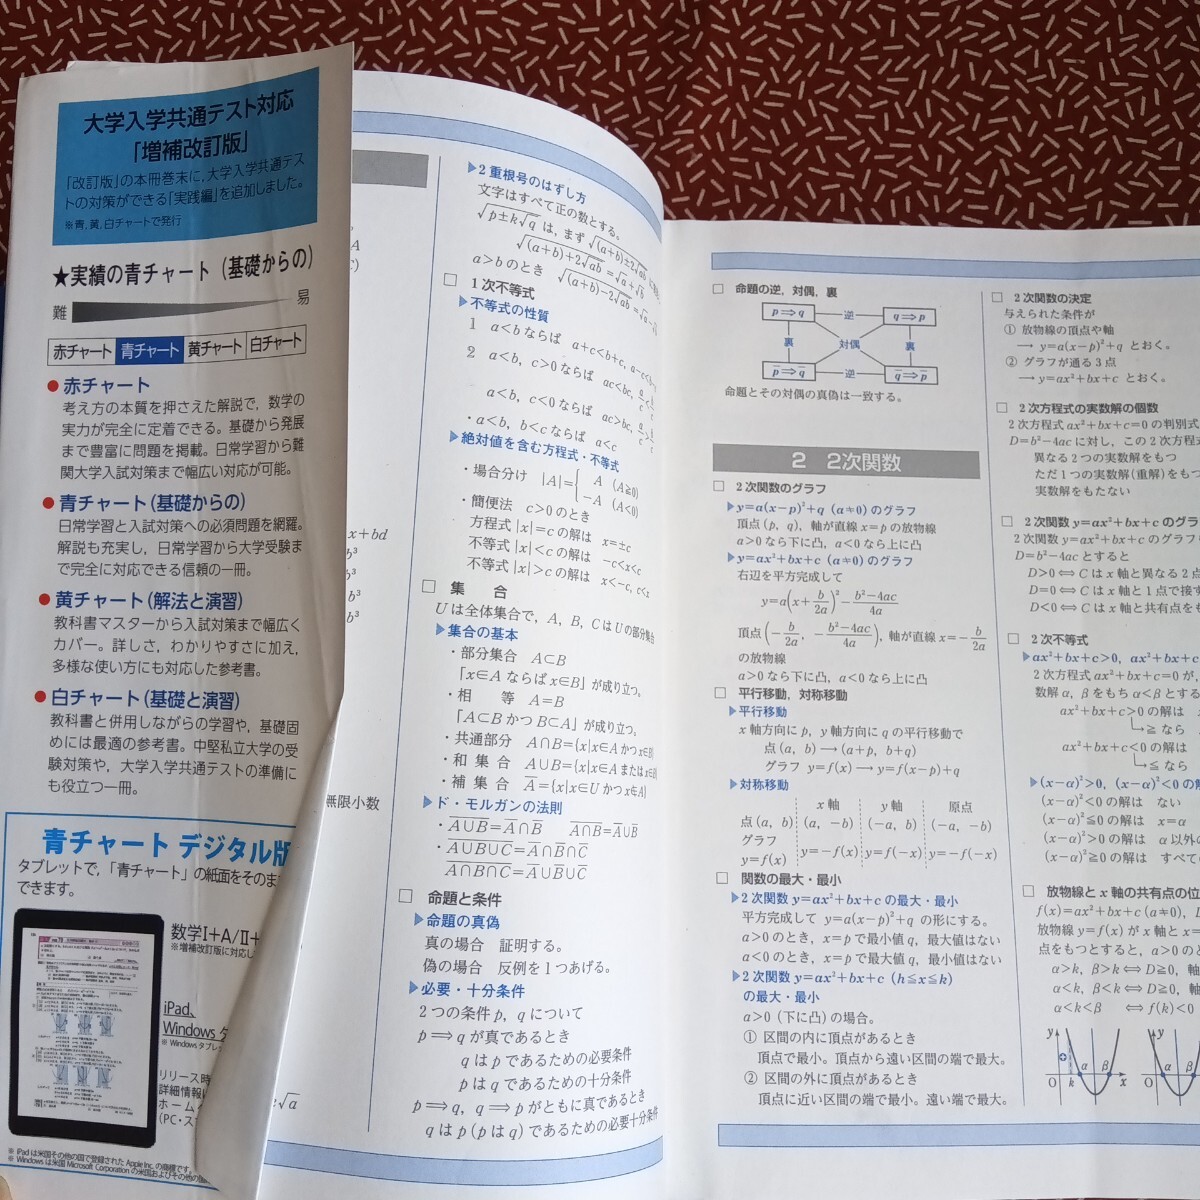 大学入学共通テスト対応
「増補改訂版」
「改訂版」の本冊巻末に,大学入学共通テス
トの対策ができる「実践編」を追加しました。
※青,黄,白チャートで発行
★実績の青チャート(基礎からの)
難
易
赤チャート 青チャート 黄チャート 白チャート
● 赤チャート
考え方の本質を押さえた解説で,数学の
実力が完全に定着できる。基礎から発展
まで豊富に問題を掲載。日常学習から難
関大学入試対策まで幅広い対応が可能。
● 青チャート(基礎からの)
日常学習と入試対策への必須問題を網羅。
解説も充実し,日常学習から大学受験ま
で完全に対応できる信頼の一冊。
● 黄チャート(解法と演習)
教科書マスターから入試対策まで幅広く
カバー。詳しさ,わかりやすさに加え,
多様な使い方にも対応した参考書。
● 白チャート(基礎と演習)
教科書と併用しながらの学習や,基礎固
めには最適の参考書。中堅私立大学の受
験対策や,大学入学共通テストの準備に
も役立つ一冊。
青チャート デジタル版
タブレットで,「青チャート」の紙面をそのまま
できます。
数学Ⅰ+A/Ⅱ+
※増補改訂版に対応し
iPad、
Windows タ
※ Windowsタブレ
リリース時
詳細情報に
ホーム
(PC・ス
※ iPadは米国その他の国で登録された Apple Inc. の商標です。
※ Windowsは米国 Microsoft Corporation の米国およびその他の国
x+bd
b³
b³
b³
無限小数
√a
▶2重根号のはずし方
文字はすべて正の数とする。
√p±k√q は,まず √(a+b)±2√ab
√(a+b)+2√ab=√a+√b
a>bのとき √(a+b)-2√ab=√a-√b
□ 1次不等式
▶不等式の性質
1 a<bならば a+c<b+c, a-c<b-c
2 a<b, c>0ならば ac<bc, a/c<b/c
a<b, c<0ならば ac>bc, a/c>b/c
・a<b, b<cならば a<c
▶絶対値を含む方程式・不等式
・場合分け |A|={ A (A≧0)
-A (A<0)
・簡便法 c>0のとき
方程式 |x|=c の解は x=±c
不等式 |x|<c の解は -c<x<c
不等式 |x|>c の解は x<-c, c<x
□ 集 合
Uは全体集合で, A, B, CはUの部分集合
▶集合の基本
・部分集合 A⊂B
「x∈Aならばx∈B」が成り立つ。
・相 等 A=B
「A⊂BかつB⊂A」が成り立つ。
・共通部分 A∩B={x|x∈Aかつx∈B}
・和 集 合 A∪B={x|x∈Aまたはx∈B}
・補 集 合 A̅={x|x∈Uかつx∉A}
▶ド・モルガンの法則
・A̅∪̅B̅=A̅∩B̅ A̅∩̅B̅=A̅∪B̅
・A̅∪̅B̅∪̅C̅=A̅∩B̅∩C̅
A̅∩̅B̅∩̅C̅=A̅∪B̅∪C̅
□ 命題と条件
▶命題の真偽
真の場合 証明する。
偽の場合 反例を1つあげる。
▶必要・十分条件
2つの条件p, qについて
p⟹qが真であるとき
qはpであるための必要条件
pはqであるための十分条件
p⟹q, q⟹pがともに真であるとき
qはp(pはq)であるための必要十分条件
□ 命題の逆, 対偶, 裏
p⟹q 逆 q⟹p
裏 対偶 裏
p̅⟹q̅ 逆 q̅⟹p̅
命題とその対偶の真偽は一致する。
2 2次関数
□ 2次関数のグラフ
▶y=a(x-p)²+q (a≠0) のグラフ
頂点(p, q), 軸が直線x=pの放物線
a>0なら下に凸, a<0なら上に凸
▶y=ax²+bx+c (a≠0) のグラフ
右辺を平方完成して
y=a(x+b/2a)²-(b²-4ac)/4a
頂点(-b/2a, -(b²-4ac)/4a), 軸が直線x=-b/2a
の放物線
a>0なら下に凸, a<0なら上に凸
□ 平行移動, 対称移動
▶平行移動
x軸方向にp, y軸方向にqの平行移動で
点(a, b)⟶(a+p, b+q)
グラフ y=f(x)⟶y=f(x-p)+q
▶対称移動
x軸 y軸 原点
点(a, b) (a, -b) (-a, b) (-a, -b)
グラフ
y=f(x) y=-f(x) y=f(-x) y=-f(-x)
□ 関数の最大・最小
▶2次関数 y=ax²+bx+c の最大・最小
平方完成して y=a(x-p)²+q の形にする。
a>0のとき, x=pで最小値q, 最大値はない
a<0のとき, x=pで最大値q, 最小値はない
▶2次関数 y=ax²+bx+c (h≦x≦k)
の最大・最小
a>0 (下に凸) の場合。
① 区間の内に頂点があるとき
頂点で最小。頂点から遠い区間の端で最大。
② 区間の外に頂点があるとき
頂点に近い区間の端で最小。遠い端で最大。
□ 2次関数の決定
与えられた条件が
① 放物線の頂点や軸
⟶ y=a(x-p)²+q とおく。
② グラフが通る3点
⟶ y=ax²+bx+c とおく。
□ 2次方程式の実数解の個数
2次方程式 ax²+bx+c=0 の判別式
D=b²-4ac に対し, この2次方程式
異なる2つの実数解をもつ
ただ1つの実数解(重解)をもつ
実数解をもたない
□ 2次関数 y=ax²+bx+c のグラフ
2次関数 y=ax²+bx+c のグラフ
D=b²-4ac とすると
D>0⟺Cはx軸と異なる2点
D=0⟺Cはx軸と1点で接す
D<0⟺Cはx軸と共有点をも
□ 2次不等式
▶ax²+bx+c>0, ax²+bx+c
2次方程式 ax²+bx+c=0 が,
数解α, βをもちα<βとする
ax²+bx+c>0 の解は
≧なら
ax²+bx+c<0 の解は
≦なら
▶(x-α)²>0, (x-α)²<0 の解
(x-α)²<0 の解は ない
(x-α)²≦0 の解は x=α
(x-α)²>0 の解は α以外の
(x-α)²≧0 の解は すべて
□ 放物線とx軸の共有点の位
f(x)=ax²+bx+c (a≠0),
放物線 y=f(x) がx軸とx=
点をもつとすると, a>0の
α>k, β>k⟺D≧0, 軸
α<k, β<k⟺D≧0, 軸
α<k<β ⟺f(k)<0
y + O k α β x
y O α β